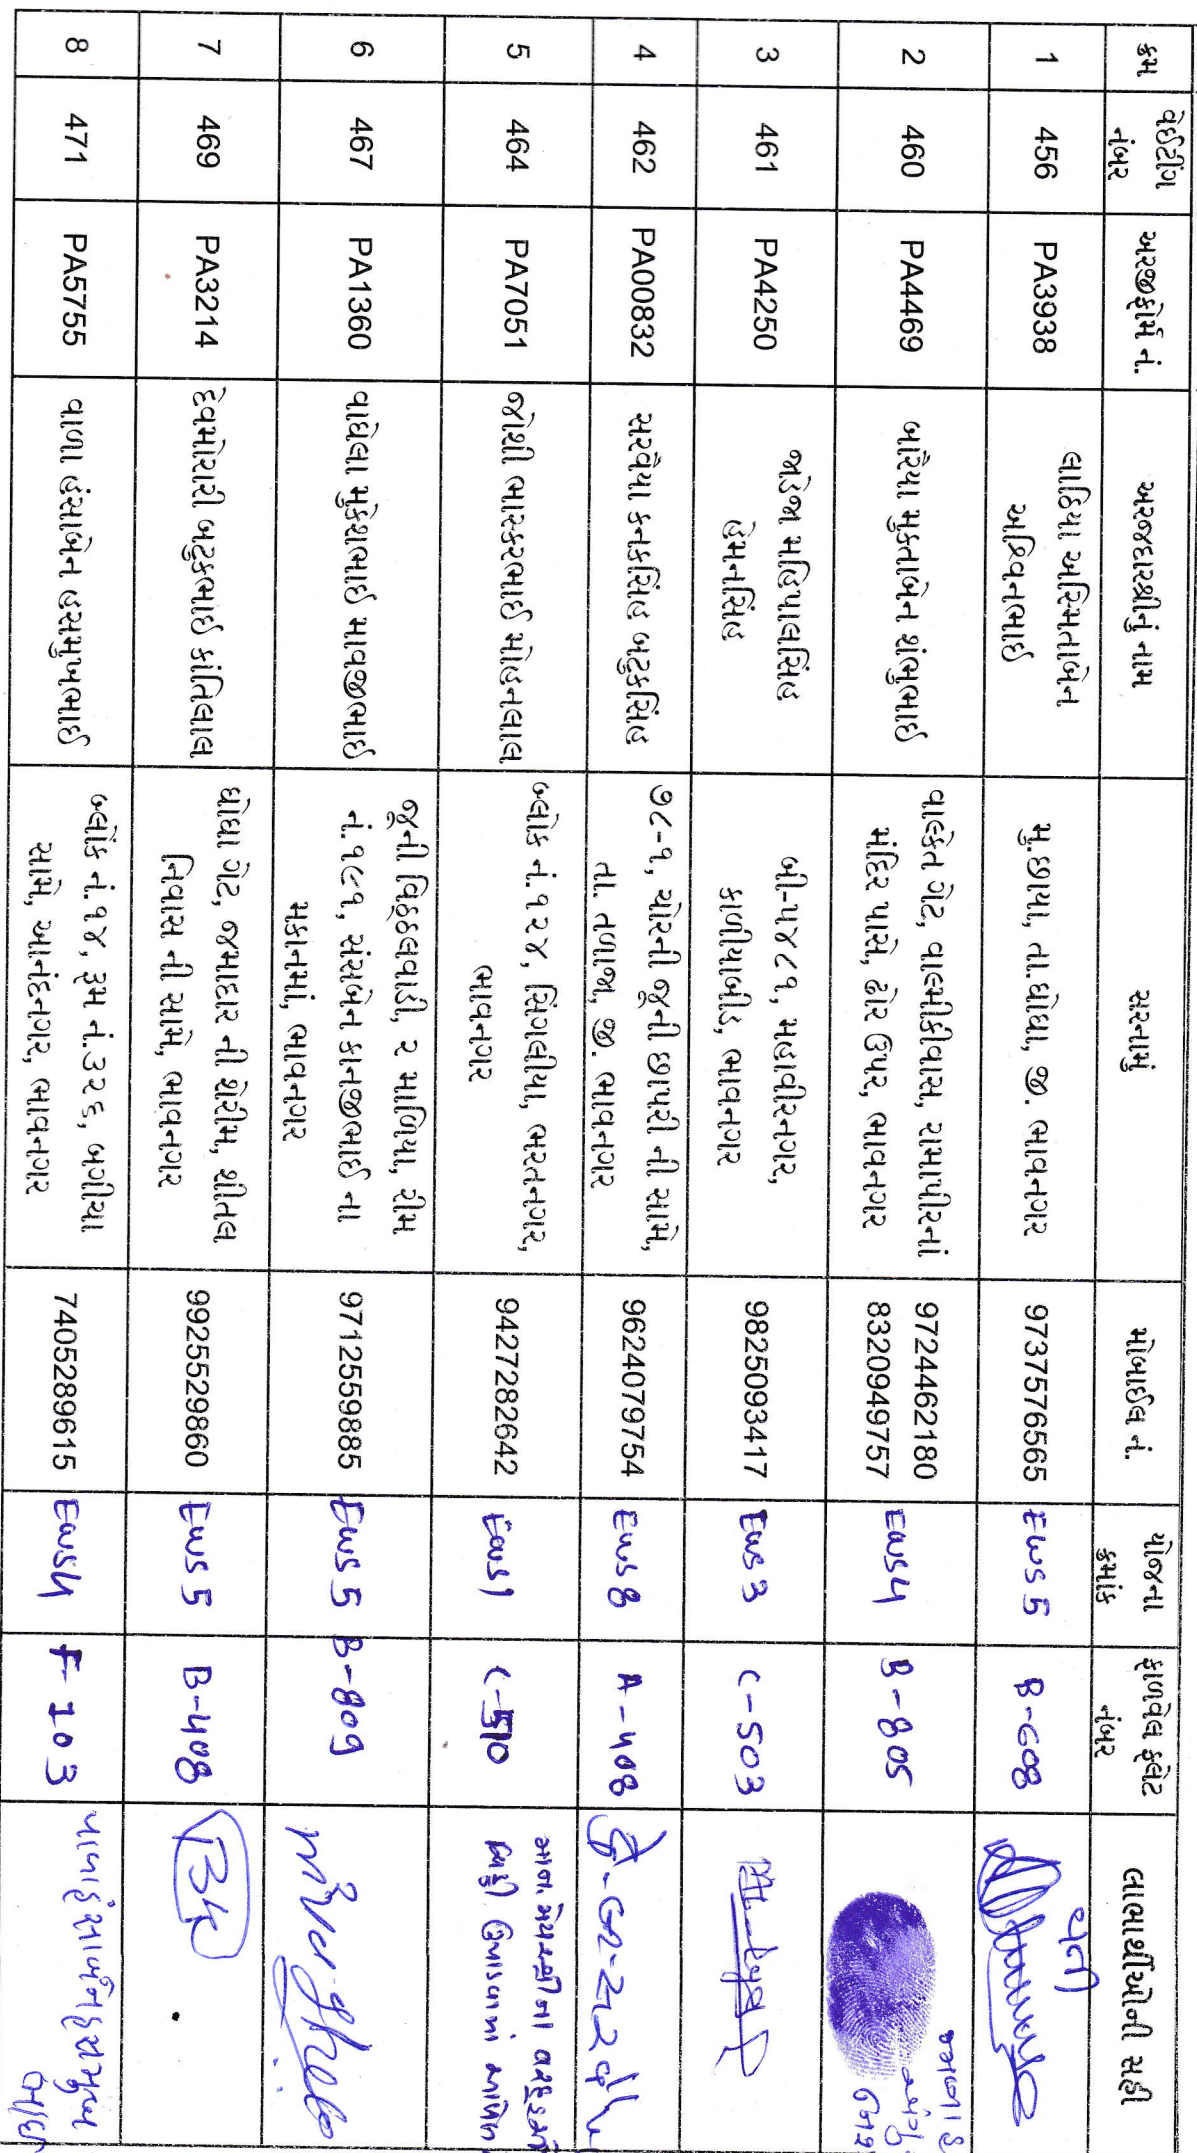 ક્રમ
વેઈટીંગ
નંબર
અરજીફોર્મ નં.
અરજદારશ્રીનું નામ
સરનામું
મોબાઈલ નં.
યોજના
ક્રમાંક
ફાળવેલ ફ્લેટ
નંબર
લાભાર્થીઓની સહી
1 456 PA3938
લાઠિયા અસ્મિતાબેન
અશ્વિનભાઈ
મુ.છાયા, તા.ઘોઘા, જી. ભાવનગર
9737576565 EWS 5 B-608
2 460 PA4469 બારૈયા મુકતાબેન શંભુભાઈ
વાલ્કેત ગેટ, વાલ્મીકીવાસ, રામાપીરનાં
મંદિર પાસે, ઢોર ઉપર, ભાવનગર
9724462180
8320949757
EWS4 B-805
3 461 PA4250
જાડેજા મહિપાલસિંહ
હેમનસિંહ
બી-૫૪૮૧, મહાવીરનગર,
કાળીયાબીડ, ભાવનગર
9825093417 EWS 3 C-503
4 462 PA00832 સરવૈયા કનકસિંહ બટુકસિંહ
૭૮-૧, ચોરની જૂની છાપરી ની સામે,
તા. તળાજા, જી. ભાવનગર
9624079754 EWS 8 A-408
5 464 PA7051 જોશી ભાસ્કરભાઈ મોહનલાલ
બ્લોક નં.૧૨૪, સિગલીયા, ભરતનગર,
ભાવનગર
9427282642 EWS1 C-510
6 467 PA1360 વાઘેલા મુકેશભાઈ માવજીભાઈ
જૂની વિઠ્ઠલવાડી, ૨ માળિયા, રીમ
નં.૧૯૧, સંસબેન કાનજીભાઈ ના
મકાનમાં, ભાવનગર
9712559885 EWS 5 B-809
7 469 PA3214 દેવમોરારી બટુકભાઈ કાંતિલાલ
ઘોઘા ગેટ, જમાદાર ની શેરીમ, શીતલ
નિવાસ ની સામે, ભાવનગર
9925529860 EWS 5 B-408
8 471 PA5755 વાળા હંસાબેન હસમુખભાઈ
બ્લોક નં.૧૪, રૂમ નં.૩૨૬, બગીચા
સામે, આનંદનગર, ભાવનગર
7405289615 EWS4 F-103